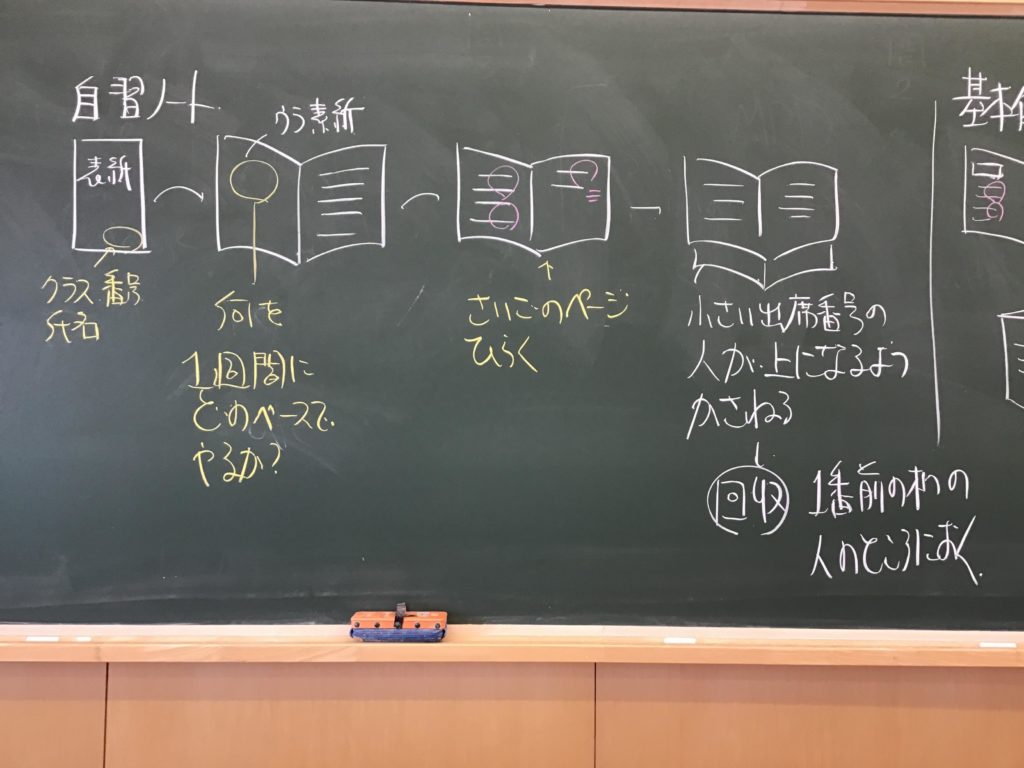 自習ノート
表紙
クラス番号
氏名
ウラ表紙
何を
1回間に
どのペースで
やるか?
さいごのページ
ひらく
小さい出席番号の
人が上になるよう
かさねる
回収
1番前の机の
人のところにおく.
基本